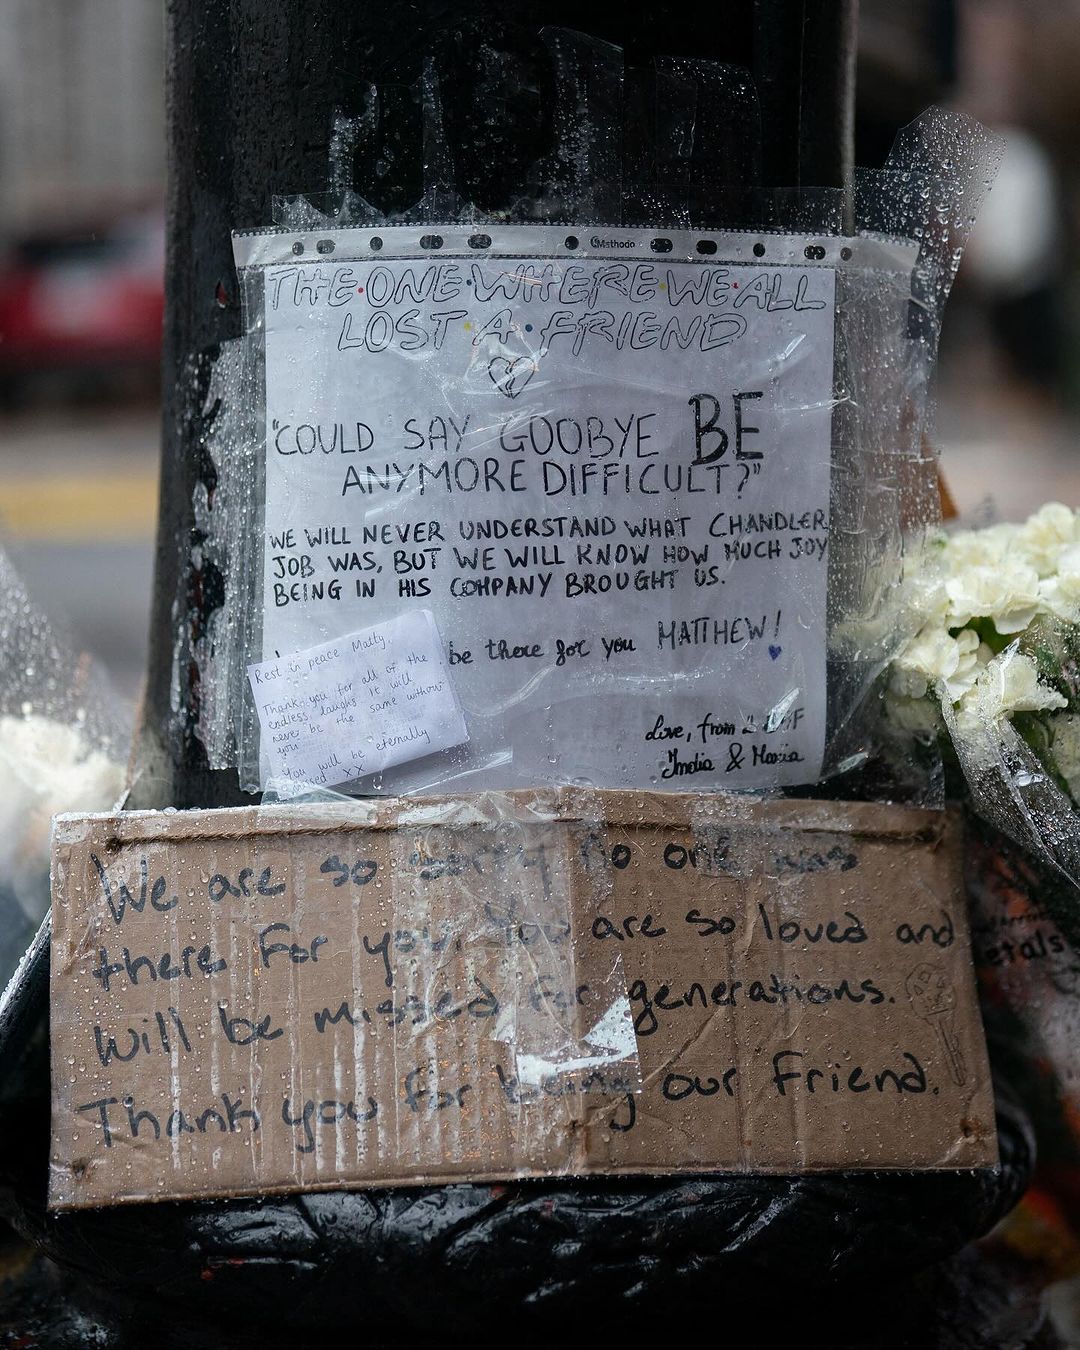 Methodo
THE ONE WHERE WE ALL
LOST A FRIEND
"COULD SAY GOOBYE BE
ANYMORE DIFFICULT?"
WE WILL NEVER UNDERSTAND WHAT CHANDLER
JOB WAS, BUT WE WILL KNOW HOW MUCH JOY
BEING IN HIS COMPANY BROUGHT US.
be there for you MATTHEW!
Love, from
India & Maria
Rest in peace Matty.
Thank you for all of the
endless laughs it will
never be the same without
you
You will be eternally
missed. xx
We are so sorry no one was
there for you. You are so loved and
will be missed for generations.
Thank you for being our friend.
etals